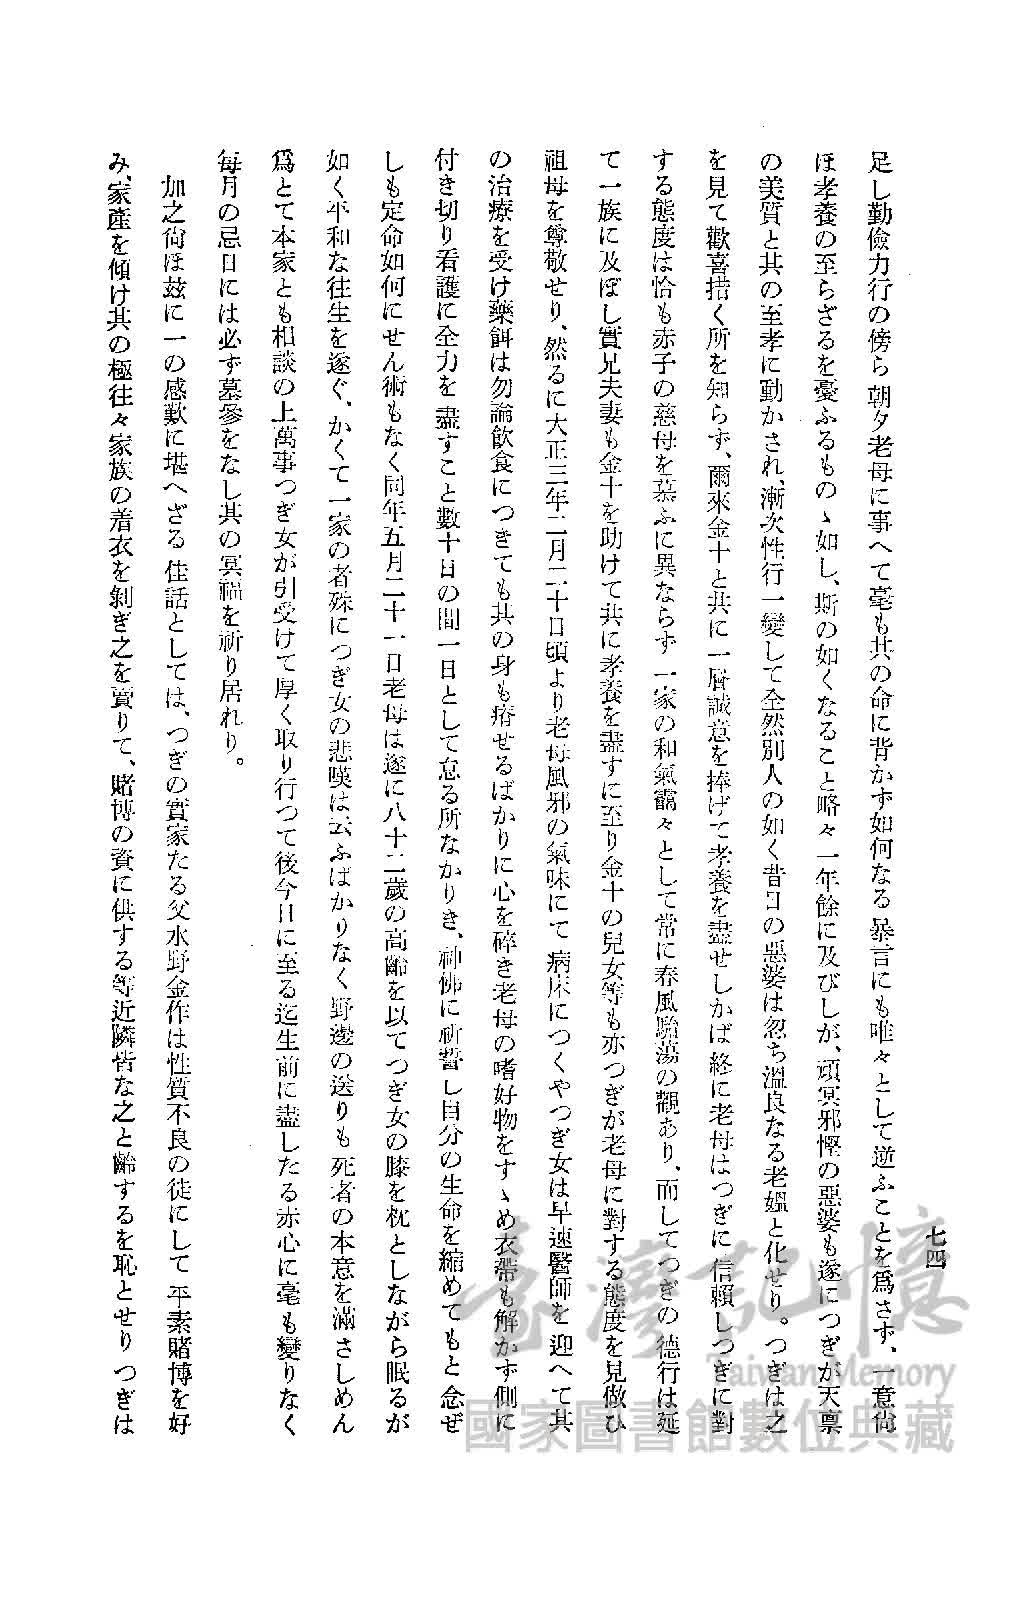 七四
足し勤儉力行の傍ら朝夕老母に事へて毫も其の命に背かず如何なる暴言にも唯々として逆ふことを爲さず、一意尙
ほ孝養の至らざるを憂ふるものゝ如し、斯の如くなること略々一年餘に及びしが、頑冥邪慳の惡婆も遂につぎが天禀
の美質と其の至孝に動かされ、漸次性行一變して全然別人の如く昔日の惡婆は忽ち溫良なる老媼と化せり。つぎは之
を見て歡喜措く所を知らず、爾來金十と共に一層誠意を捧げて孝養を盡せしかば終に老母はつぎに信賴しつぎに對
する態度は恰も赤子の慈母を慕ふに異ならず一家の和氣靄々として常に春風駘蕩の觀あり、而してつぎの德行は延
て一族に及ぼし實兄夫妻も金十を助けて共に孝養を盡すに至り金十の兒女等も亦つぎが老母に對する態度を見倣ひ
祖母を尊敬せり、然るに大正三年二月二十日頃より老母風邪の氣味にて病床につくやつぎ女は早速醫師を迎へて其
の治療を受け藥餌は勿論飮食につきても其の身も瘠せるばかりに心を碎き老母の嗜好物をすゝめ衣帶も解かず側に
付き切り看護に全力を盡すこと數十日の間一日として怠る所なかりき、神佛に祈誓し自分の生命を縮めてもと念ぜ
しも定命如何にせん術もなく同年五月二十一日老母は遂に八十二歲の高齡を以てつぎ女の膝を枕としながら眠るが
如く平和な往生を遂ぐ、かくて一家の者殊につぎ女の悲嘆は、云ふばかりなく野邊の送りも死者の本意を滿さしめん
爲とて本家とも相談の上萬事つぎ女が引受けて厚く取り行つて後今日に至る迄生前に盡したる赤心に毫も變りなく
每月の忌日には必ず墓參をなし其の冥福を祈り居れり。
加之尙ほ玆に一の感歎に堪へざる佳話としては、つぎの實家たる父水野金作は性質不良の徒にして平素賭博を好
み、家產を傾け其の極往々家族の着衣を剝ぎ之を賣りて、賭博の資に供する等近隣皆な之と齡するを恥とせりつぎは
臺灣記憶
Taiwan Memory
國家圖書館數位典藏